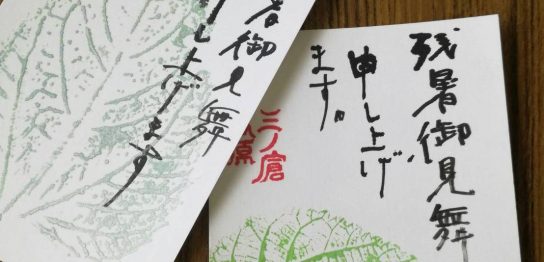 残暑御見舞
申し上げ
ます。
三ノ倉
原
暑御見舞
し上げます